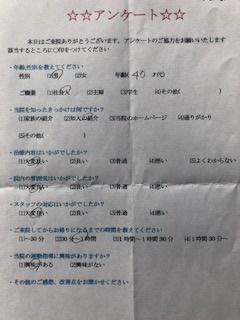 ☆☆アンケート☆☆
本日はご来院ありがとうございます。アンケートのご協力をお願いいたします
該当するところに○印をつけてください
・年齢,性別を教えてください
性別 (1)男 (2)女 年齢( 40 )才
ご職業 (1)社会人 (2)主婦 (3)学生 (4)その他( )
・当院を知ったきっかけは何ですか?
(1)家族の紹介 (2)知人の紹介 (3)当院のホームページ (4)通りがかり
(5)その他( )
・治療内容はいかがでしたか?
(1)大変良い (2)良い (3)普通 (4)悪い (5)よくわからない
・院内の雰囲気はいかがでしたか?
(1)大変良い (2)良い (3)普通 (4)悪い
・スタッフの対応はいかがでしたか?
(1)大変良い (2)良い (3)普通 (4)悪い
・ご来院してからお帰りになるまでの時間を教えてください
(1)～30分 (2)30分～1時間 (3)1時間～1時間30分 (4)1時間30分～
・当院の運動指導に興味がありますか?
(1)興味がある (2)興味がない
・その他のご感想、改善点をお聞かせください